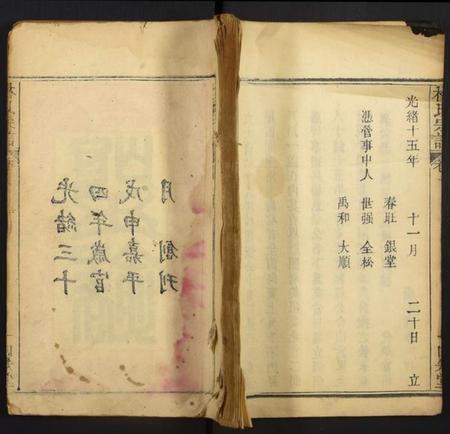 林氏宗譜 卷
光緒十五年 十一月 二十日 立
春旺 銀堂
憑管事中人 世强 全松
禹和 大順
光緒三十
四年歲官
戊申嘉平
月 創刊